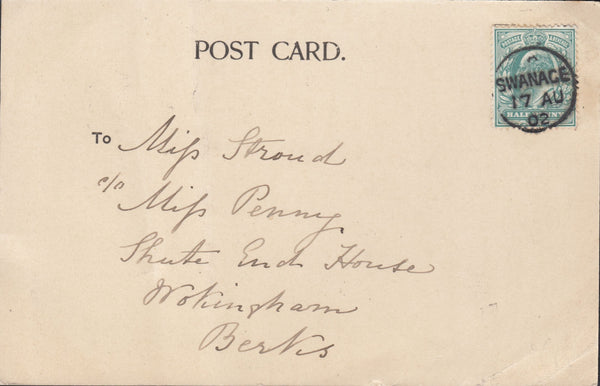 POST CARD.
SWANAGE
17 AU
02
To Miss Stroud
c/o
Miss Penny
Shute End House
Wokingham
Berks